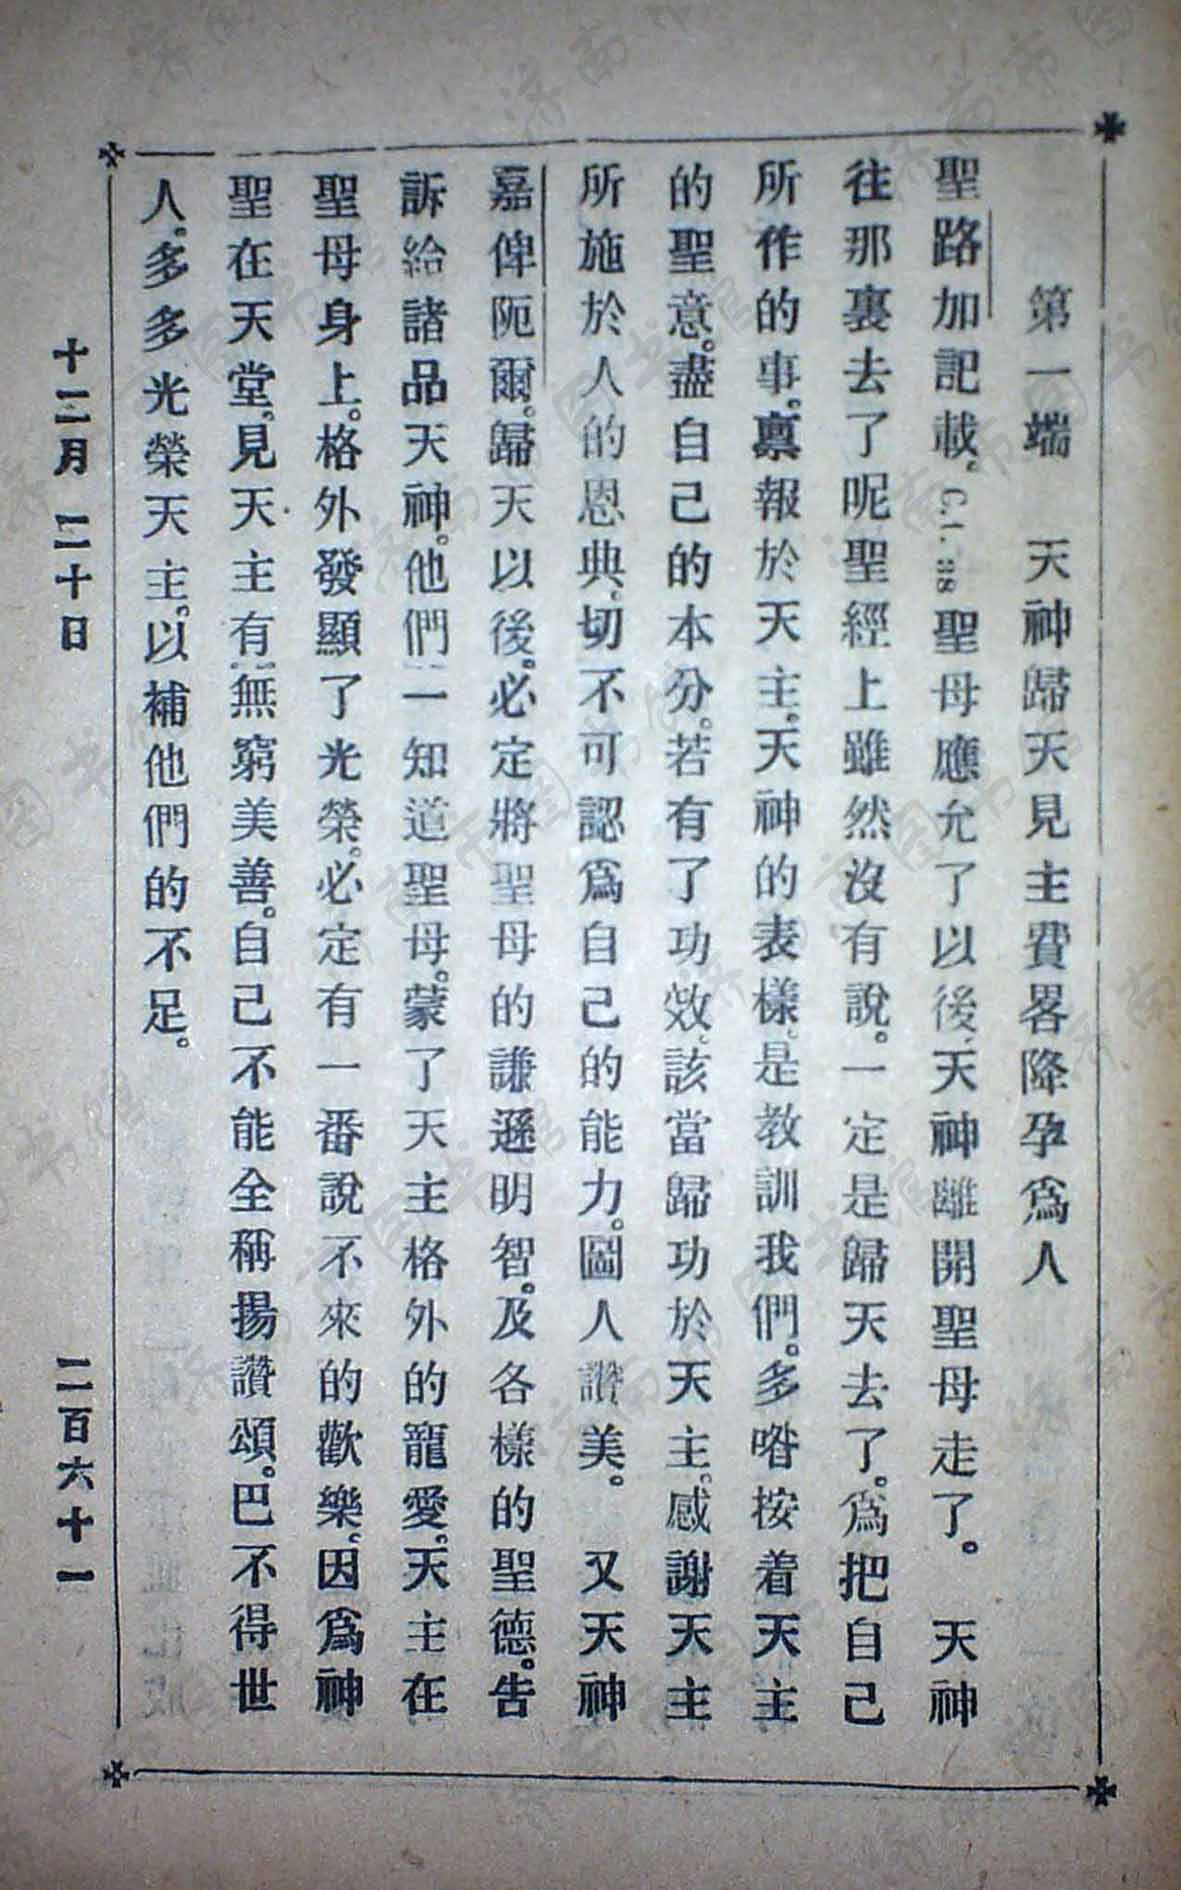 第一端　天神歸天見主費畧降孕爲人
聖路加記載。C.I. 38聖母應允了以後、天神離開聖母走了。　天神
往那裏去了呢聖經上雖然沒有說。一定是歸天去了。爲把自己
所作的事。禀報於天主。天神的表樣。是教訓我們。多喒按着天主
的聖意。盡自己的本分。若有了功效、該當歸功於天主。感謝天主
所施於人的恩典、切不可認爲自己的能力。圖人讚美。　又天神
嘉俾阨爾。歸天以後。必定將聖母的謙遜明智。及各樣的聖德。告
訴給諸品天神。他們一知道聖母。蒙了天主格外的寵愛。天主在
聖母身上。格外發顯了光榮。必定有一番說不來的歡樂。因爲神
聖在天堂。見天主有無窮美善。自己不能全稱揚讚頌。巴不得世
人。多多光榮天主。以補他們的不足。
十二月二十日
二百六十一